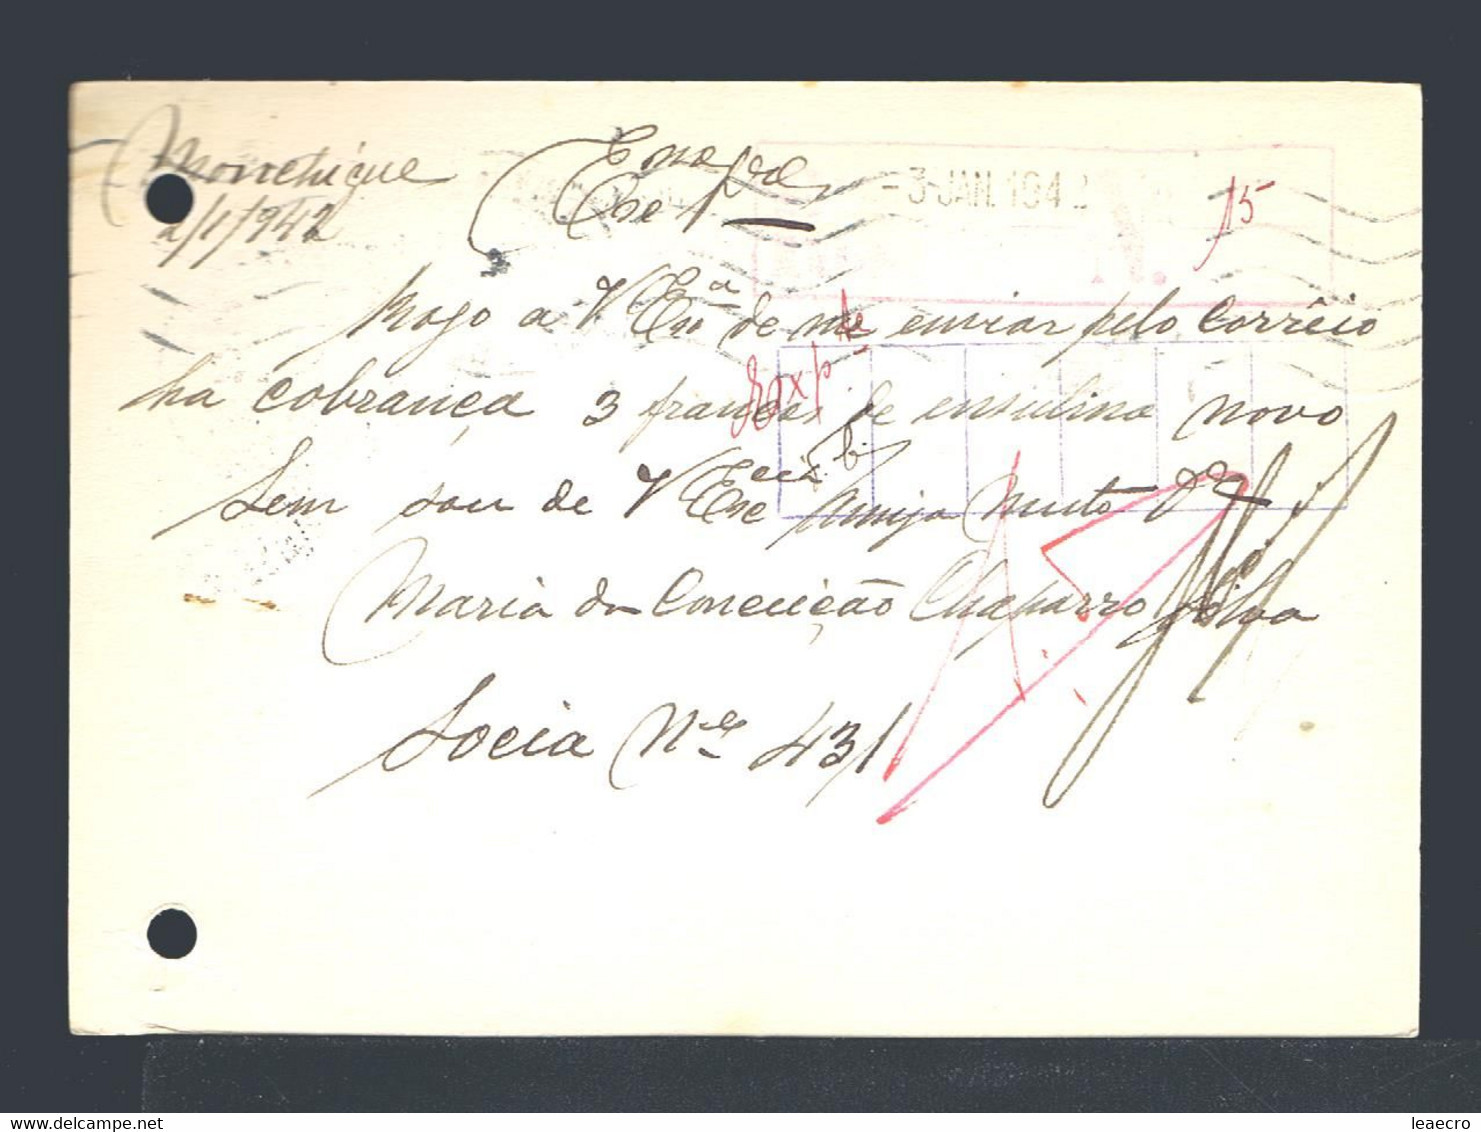 Monchique
2/1/942
-3 JAN. 1942
N.
15
Rogo a V Exª de me enviar pelo Corrêio
ha cobrança 3 francos de insulina novo
Sem sou de V Exe Amiga Muto
Maria da Conceição Chaparro Silva
Socia Nº 431
delcampe.net
leaecro